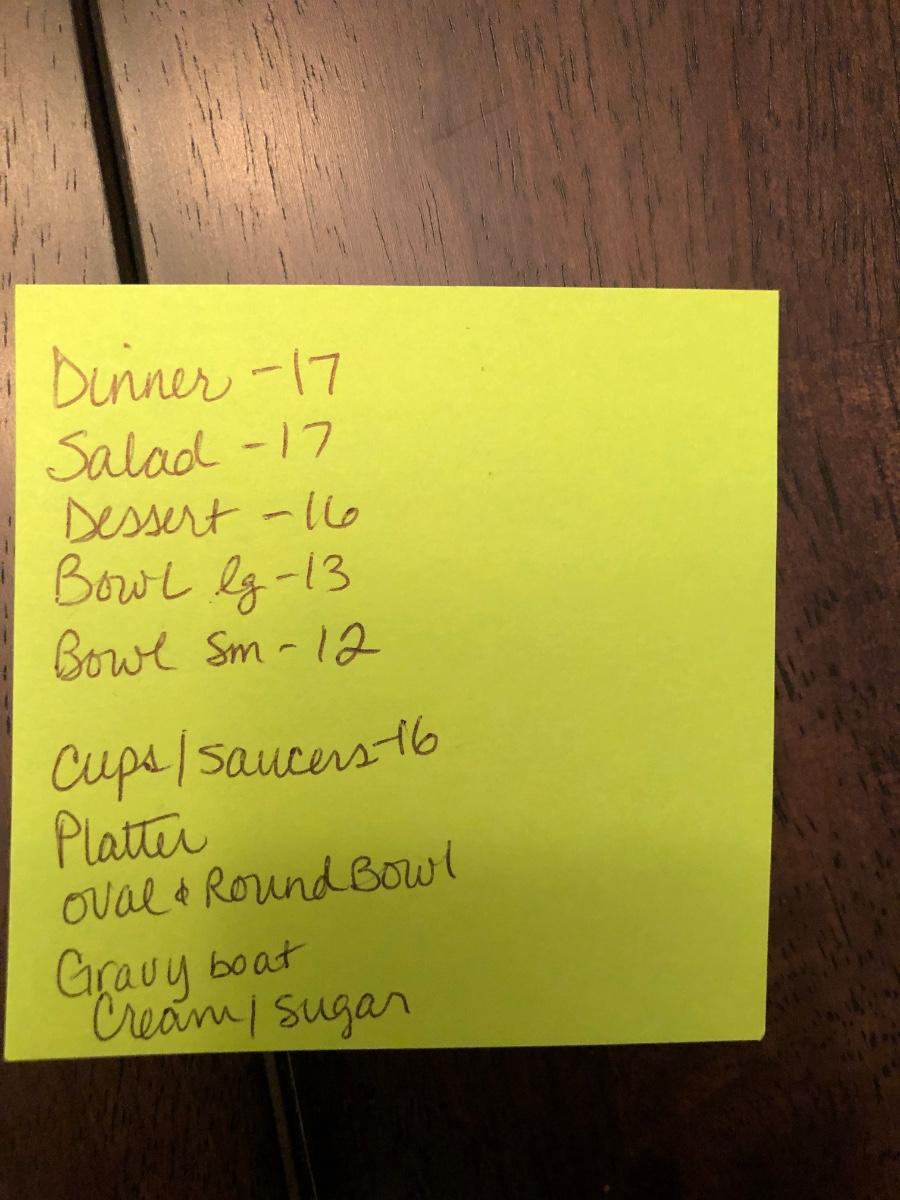 Dinner - 17
Salad - 17
Dessert - 16
Bowl lg - 13
Bowl sm - 12
Cups/saucers - 16
Platter
oval & Round Bowl
Gravy boat
Cream/sugar